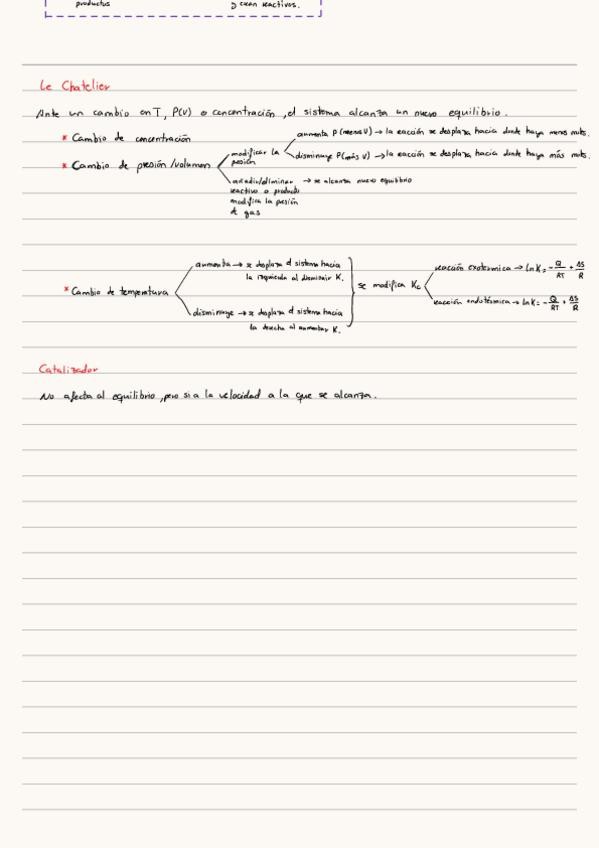 productos
y crean reactivos.
Le Chatelier
Ante un cambio en T, P(V) o concentración, el sistema alcanza un nuevo equilibrio.
* Cambio de concentración
* Cambio de presión/volumen
modificar la
presión
aumenta P(menos V) → la reacción se desplaza hacia donde haya menos mols.
disminuye P(más V) → la reacción se desplaza hacia donde haya más mols.
añadir/eliminar → se alcanza nuevo equilibrio
reactivo o producto
modifica la presión
de gas
* Cambio de temperatura
aumenta → se desplaza el sistema hacia
la izquierda al disminuir K.
disminuye → se desplaza el sistema hacia
la derecha al aumentar K.
se modifica Kc
reacción exotérmica → lnK = - Q/RT + ΔS/R
reacción endotérmica → lnK = - Q/RT + ΔS/R
Catalizador
No afecta al equilibrio, pero si a la velocidad a la que se alcanza.